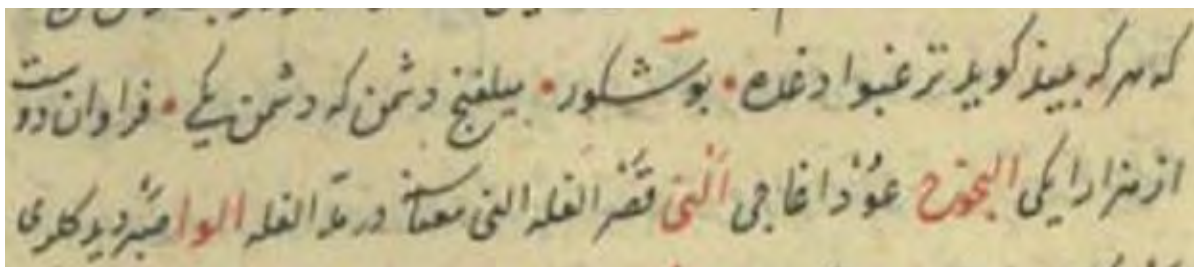 که هر که بیند کوید تر غنبوا دغده • بو شکور • بیلفنج دشمن که دشمن یکی • فراوان دوست
از هزار ایکی عود اغاجی النی الغله النی معناسنه در الغله الوا صبر دید کلری